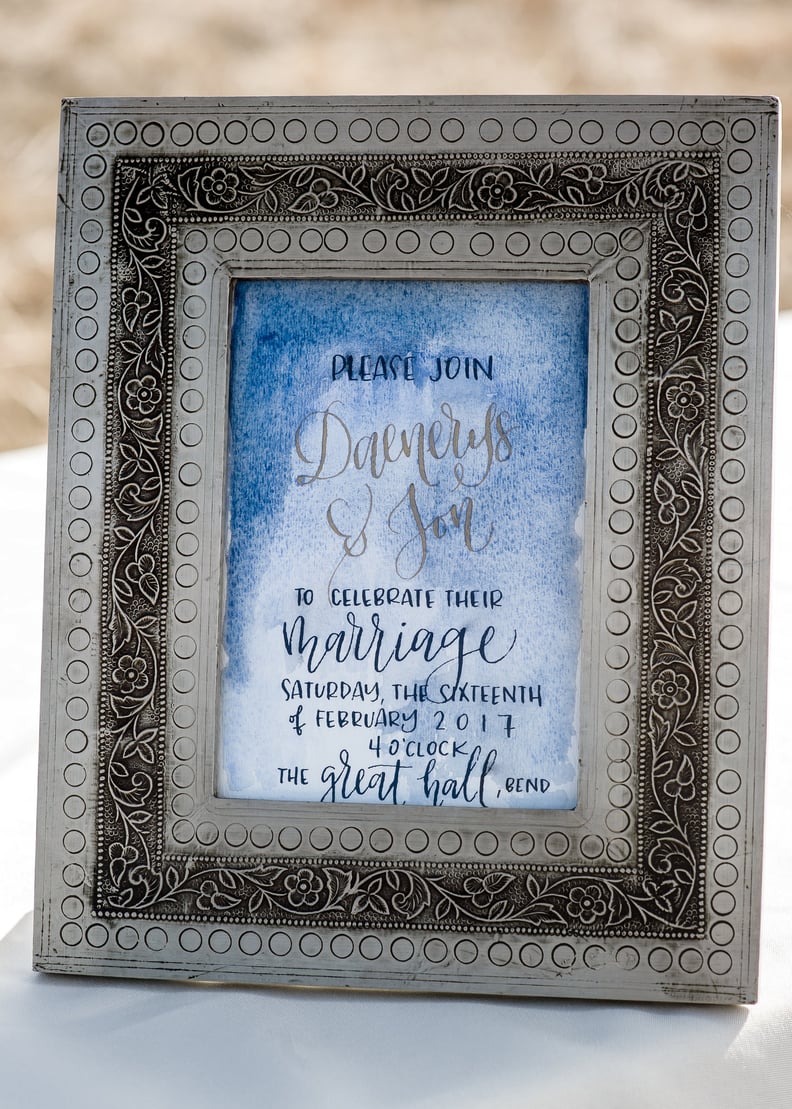 PLEASE JOIN
Daenerys
& Jon
TO CELEBRATE THEIR
marriage
SATURDAY, THE SIXTEENTH
of FEBRUARY 2017
4 O'CLOCK
THE great hall, BEND